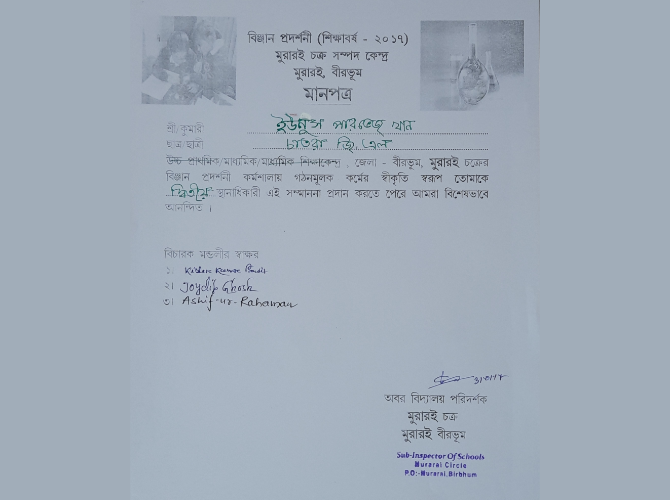 বিজ্ঞান প্রদর্শনী (শিক্ষাবর্ষ - ২০১৭)
মুরারই চক্র সম্পদ কেন্দ্র
মুরারই, বীরভূম
মানপত্র
শ্রী/কুমারী ইউনুস পারভেজ খান
ছাত্র/ছাত্রী চাতরা জি, এল
উচ্চ প্রাথমিক/মাধ্যমিক/মাধ্যমিক শিক্ষাকেন্দ্র, জেলা - বীরভূম, মুরারই চক্রের
বিজ্ঞান প্রদর্শনী কর্মশালায় গঠনমূলক কর্মের স্বীকৃতি স্বরূপ তোমাকে
দ্বিতীয় স্থানাধিকারী এই সম্মাননা প্রদান করতে পেরে আমরা বিশেষভাবে
আনন্দিত ।
বিচারক মন্ডলীর স্বাক্ষর
১। Kishore Kumar
২। Joydip Ghosh
৩। Ashif-ur-Rahaman
অবর বিদ্যালয় পরিদর্শক
মুরারই চক্র
মুরারই বীরভূম
Sub-Inspector Of Schools
Murarai Circle
P.O:-Murarai, Birbhum